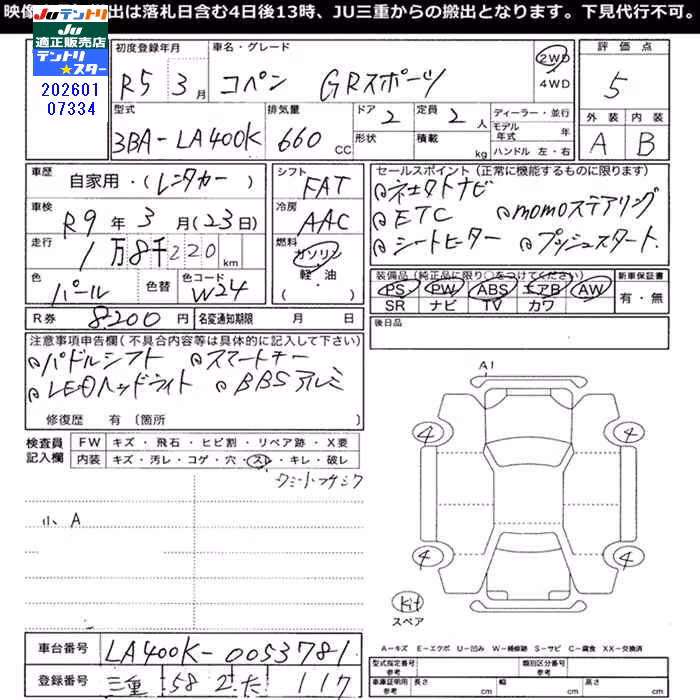 映像 出は落札日含む4日後13時、JU三重からの搬出となります。下見代行不可。
Juテントリ
JU
適正販売店
テントリ
★スター
202601
07334
初度登録年月 R5 3月
車名・グレード コペン GRスポーツ
2WD
・
4WD
評価点
5
外装 内装
A B
型式 3BA-LA400K
排気量 660 CC
ドア 2
形状
定員 2 人
積載 kg
ディーラー・並行
モデル年式 年
ハンドル 左・右
車歴 自家用・(レンタカー)
車検 R9年3月(23日)
走行 1万8千220km
色 パール
色替
色コード W24
シフト FAT
冷房 AAC
燃料 ガソリン
軽・油
( )
セールスポイント(正常に機能するものに限ります)
ETC momoステアリング
シートヒーター プッシュスタート
装備品(純正品に限り○をつけてください)
PS PW ABS エアB AW
SR ナビ TV カワ
新車保証書
有・無
後日品
R券 8200円
名変通知期限 月 日
注意事項申告欄(不具合内容等は具体的に記入して下さい)
パドルシフト スマートキー
LEDヘッドライト BBSアルミ
修復歴 有〔箇所 〕
検査員記入欄
FW キズ・飛石・ヒビ割・リペア跡・X要
内装 キズ・汚レ・コゲ・穴・スレ・キレ・破レ
小A
A1
4
4
4
4
kit
スペア
A-キズ E-エクボ U-凹み W-補修跡 S-サビ C-腐食 XX-交換済
車台番号 LA400K-0053781
登録番号 三重 582 た 117
型式指定番号 参考
類別区分番号 参考
車庫証明用 参考 長さ cm 幅 cm 高さ cm